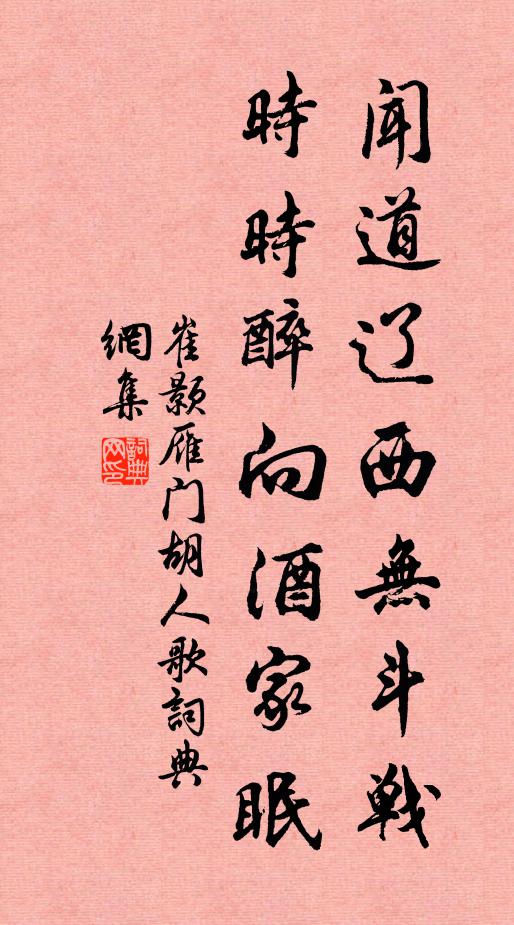 闻道辽西無斗戦
時時醉向酒家眠
崔颢雁门胡人歌詞典
網集
詞典
网印